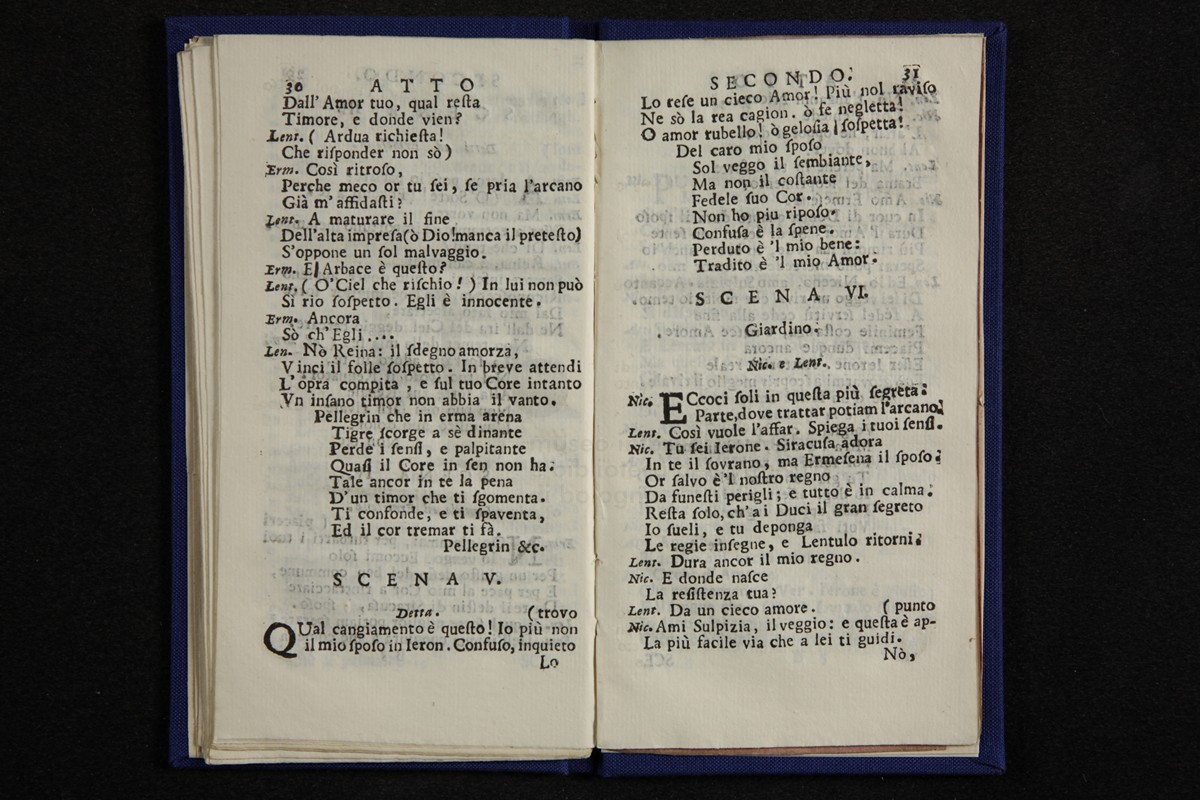 30 ATTO
Dall' Amor tuo, qual reſta
Timore, e donde vien?
Lent. ( Ardua richieſta!
Che riſponder non sò )
Erm. Così ritroſo,
Perche meco or tu ſei, ſe pria l'arcano
Già m' affidaſti?
Lent. A maturare il fine
Dell'alta impreſa(ò Dio!manca il preteſto)
S'oppone un ſol malvaggio.
Erm. E| Arbace è queſto?
Lent. ( O'Ciel che riſchio! ) In lui non può
Si rio ſoſpetto. Egli è innocente.
Erm. Ancora
Sò ch'Egli ....
Len. Nò Reina: il ſdegno amorza,
Vinci il folle ſoſpetto. In breve attendi
L'opra compita, e ſul tuo Core intanto
Vn inſano timor non abbia il vanto.
Pellegrin che in erma arena
Tigre ſcorge a sè dinante
Perde i ſenſi, e palpitante
Quaſi il Core in ſen non ha:
Tale ancor in te la pena
D'un timor che ti ſgomenta.
Ti confonde, e ti ſpaventa,
Ed il cor tremar ti fà.
Pellegrin &c.
SCENA V.
Detta. ( trovo
QUal cangiamento è queſto! Io più non
il mio ſpoſo in Ieron. Confuſo, inquieto
Lo
SECONDO. 31
Lo reſe un cieco Amor! Più nol raviſo
Ne sò la rea cagion. ò ſe negletta!
O amor rubello! ò geloſia ſoſpetta!
Del caro mio ſpoſo
Sol veggo il ſembiante,
Ma non il coſtante
Fedele ſuo Cor.
Non ho piu ripoſo.
Confuſa è la ſpene.
Perduto è 'l mio bene:
Tradito è 'l mio Amor.
SCENA VI.
Giardino.
Nic. e Lent.
Nic. ECcoci ſoli in queſta più ſegreta
Parte, dove trattar potiam l'arcano.
Lent. Così vuole l'affar. Spiega i tuoi ſenſi.
Nic. Tu ſei Ierone. Siracuſa adora
In te il ſovrano, ma Ermeſena il ſpoſo.
Or ſalvo è 'l noſtro regno
Da funeſti perigli; e tutto è in calma.
Reſta ſolo, ch' a i Duci il gran ſegreto
Io ſueli, e tu deponga
Le regie inſegne, e Lentulo ritorni.
Lent. Dura ancor il mio regno.
Nic. E donde naſce
La reſiſtenza tua?
Lent. Da un cieco amore. ( punto
Nic. Ami Sulpizia, il veggio: e queſta è ap-
La più facile via che a lei ti guidi.
Nò,